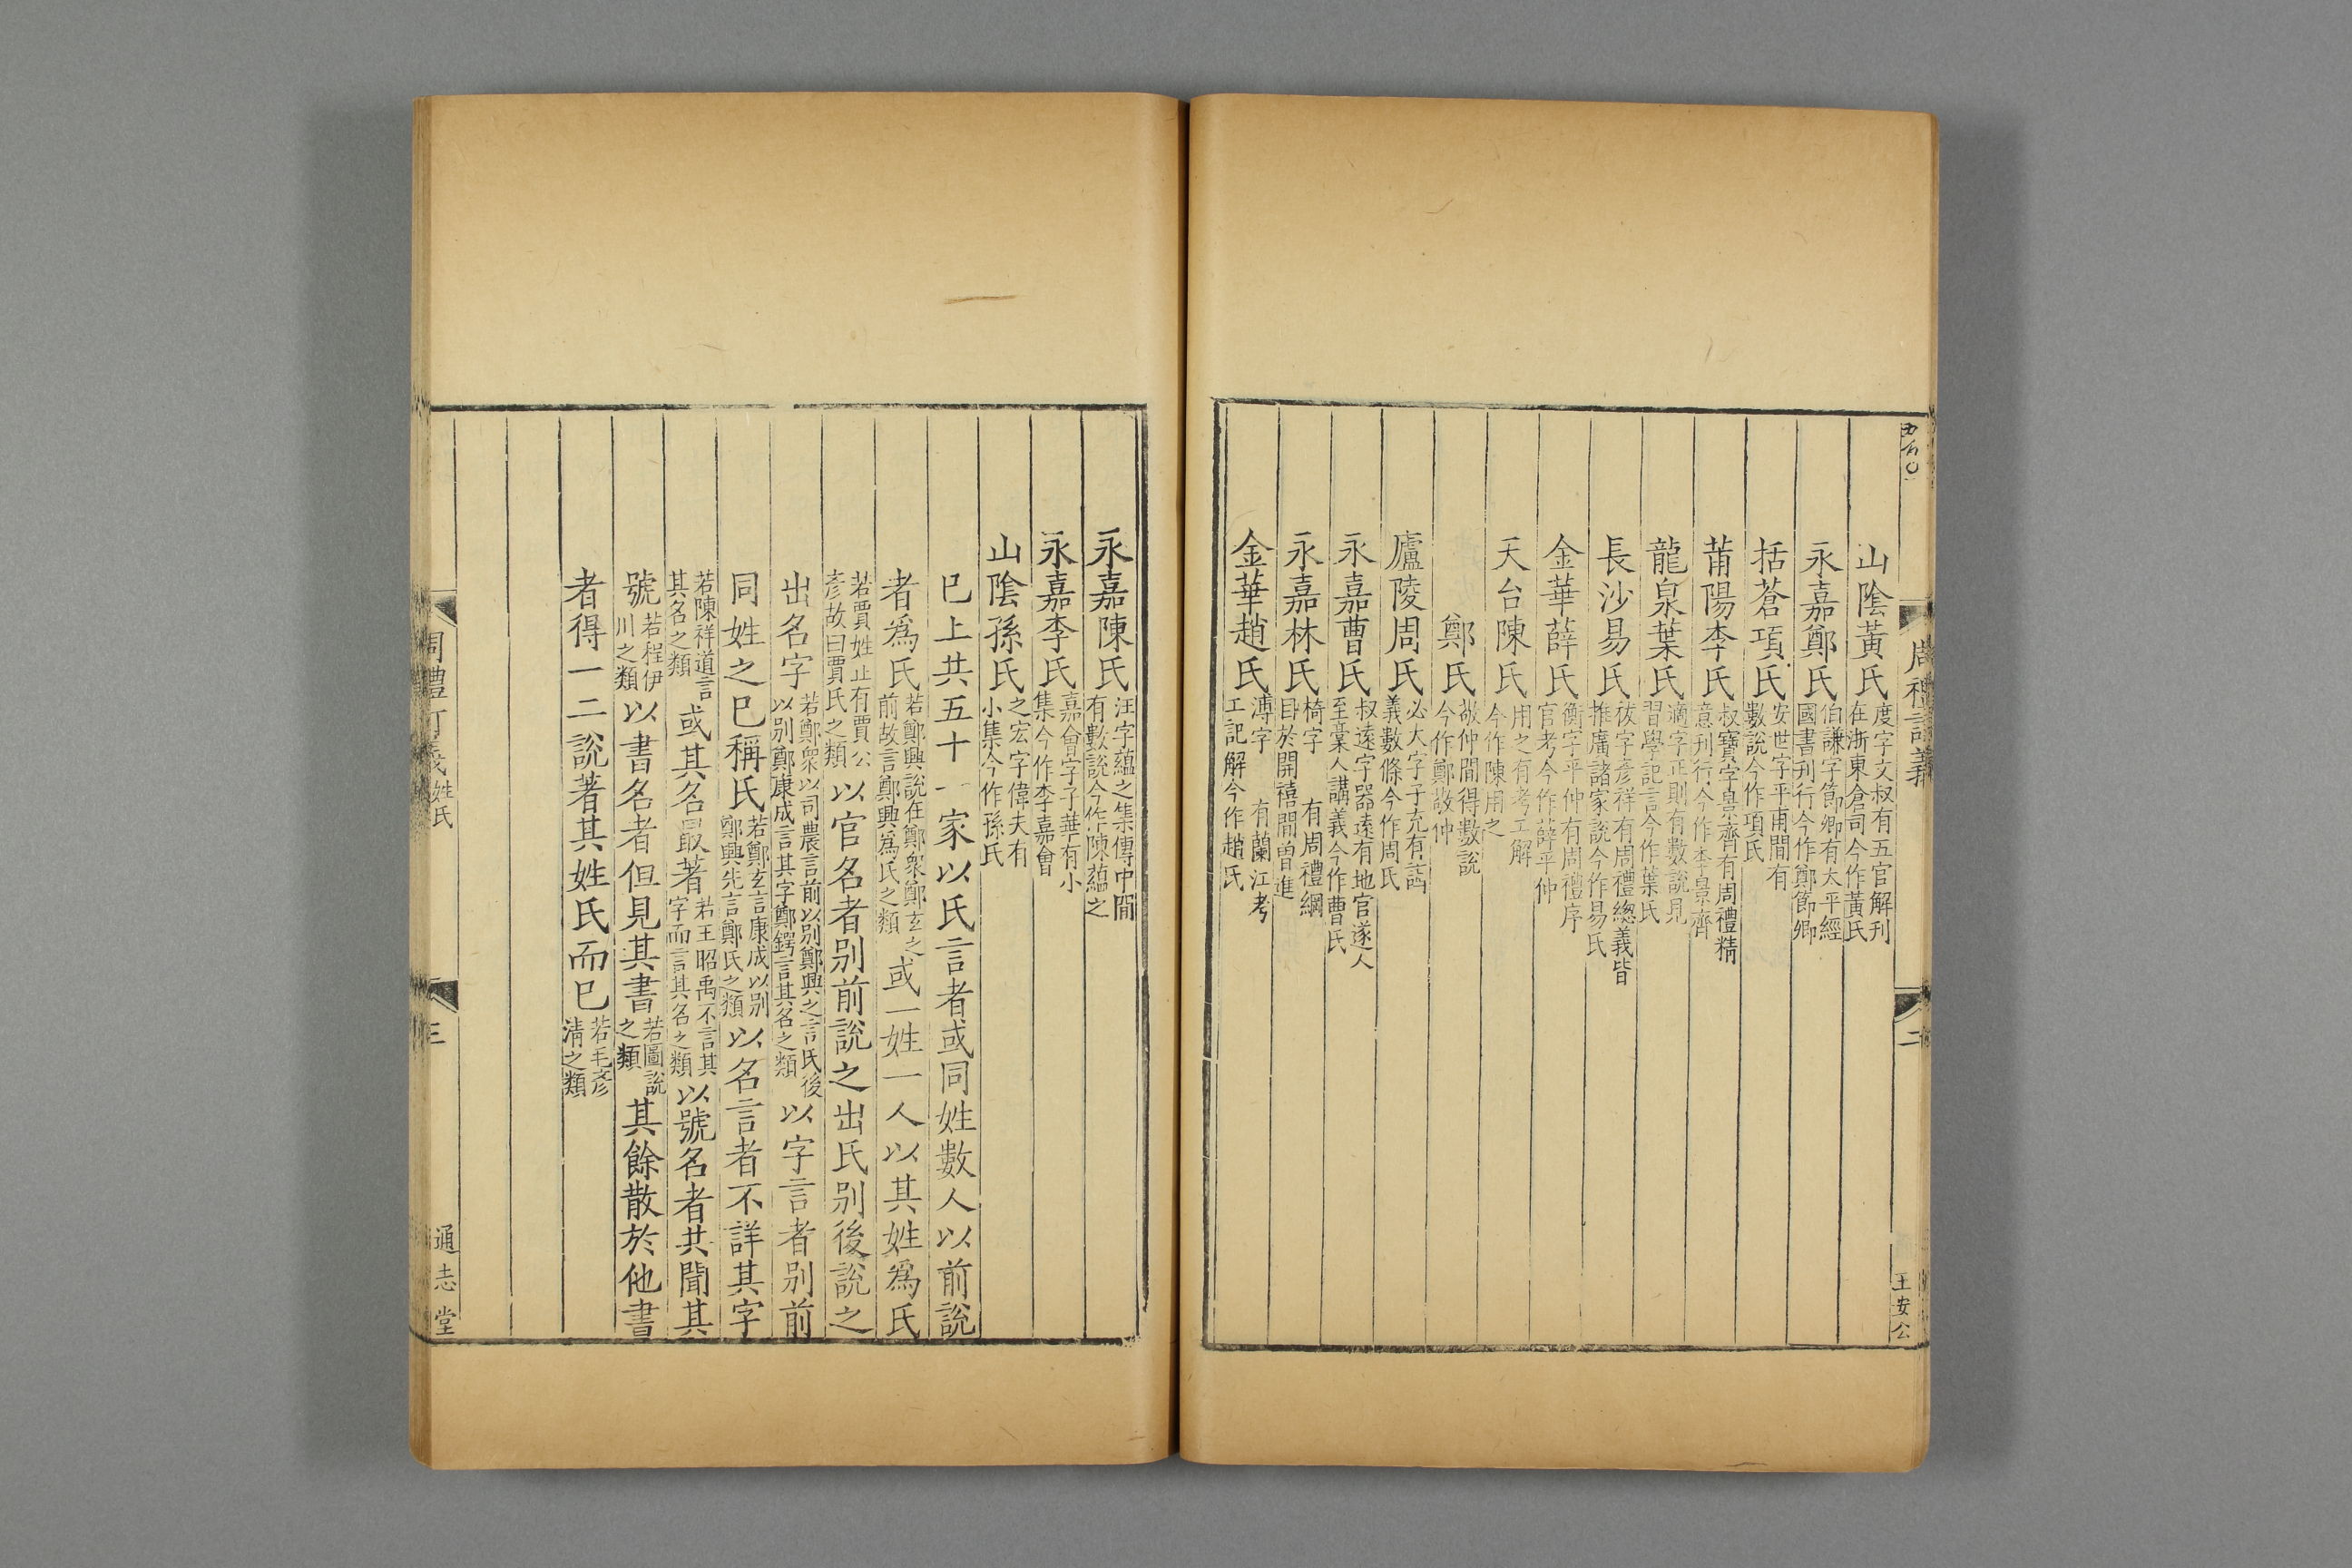 周禮訂義
二
王安公
山陰黃氏度字文叔有五官解刊在浙東倉司今作黃氏
永嘉鄭氏伯謙字節卿有太平經國書刊行今作鄭節卿
括蒼項氏安世字平甫間有數說今作項氏
莆陽李氏叔寶字景齊有周禮精意刊行今作李景齊
龍泉葉氏適字正則有數說見習學記言今作葉氏
長沙易氏祓字彥祥有周禮總義皆推廣諸家說今作易氏
金華薛氏衡字平仲有周禮序官考今作薛平仲
天台陳氏用之有考工解今作陳用之
鄭氏敬仲間得數說今作鄭敬仲
廬陵周氏必大字子充有講義數條今作周氏
永嘉曹氏叔遠字器遠有地官遂人至稾人講義今作曹氏
永嘉林氏椅字 有周禮綱目於開禧間曾進
金華趙氏溥字 有蘭江考工記解今作趙氏
永嘉陳氏汪字蘊之集傳中間有數說今作陳蘊之
永嘉李氏嘉會字子華有小集今作李嘉會
山陰孫氏之宏字偉夫有小集今作孫氏
已上共五十一家以氏言者或同姓數人以前說
者為氏若鄭興說在鄭衆鄭玄之前故言鄭興爲氏之類或一姓一人以其姓爲氏
若賈姓止有賈公彥故曰賈氏之類以官名者别前說之出氏别後說之
出名字若鄭衆以司農言前以别鄭興之言氏後以别鄭康成言其字鄭鍔言其名之類以字言者别前
同姓之已稱氏若鄭玄言康成以别鄭興先言鄭氏之類以名言者不詳其字
若陳祥道言其名之類或其名最著若王昭禹不言其字而言其名之類以號名者共聞其
號若程伊川之類以書名者但見其書若圖說之類其餘散於他書
者得一二說著其姓氏而已若毛彥清之類
周禮訂義姓氏
三
通志堂